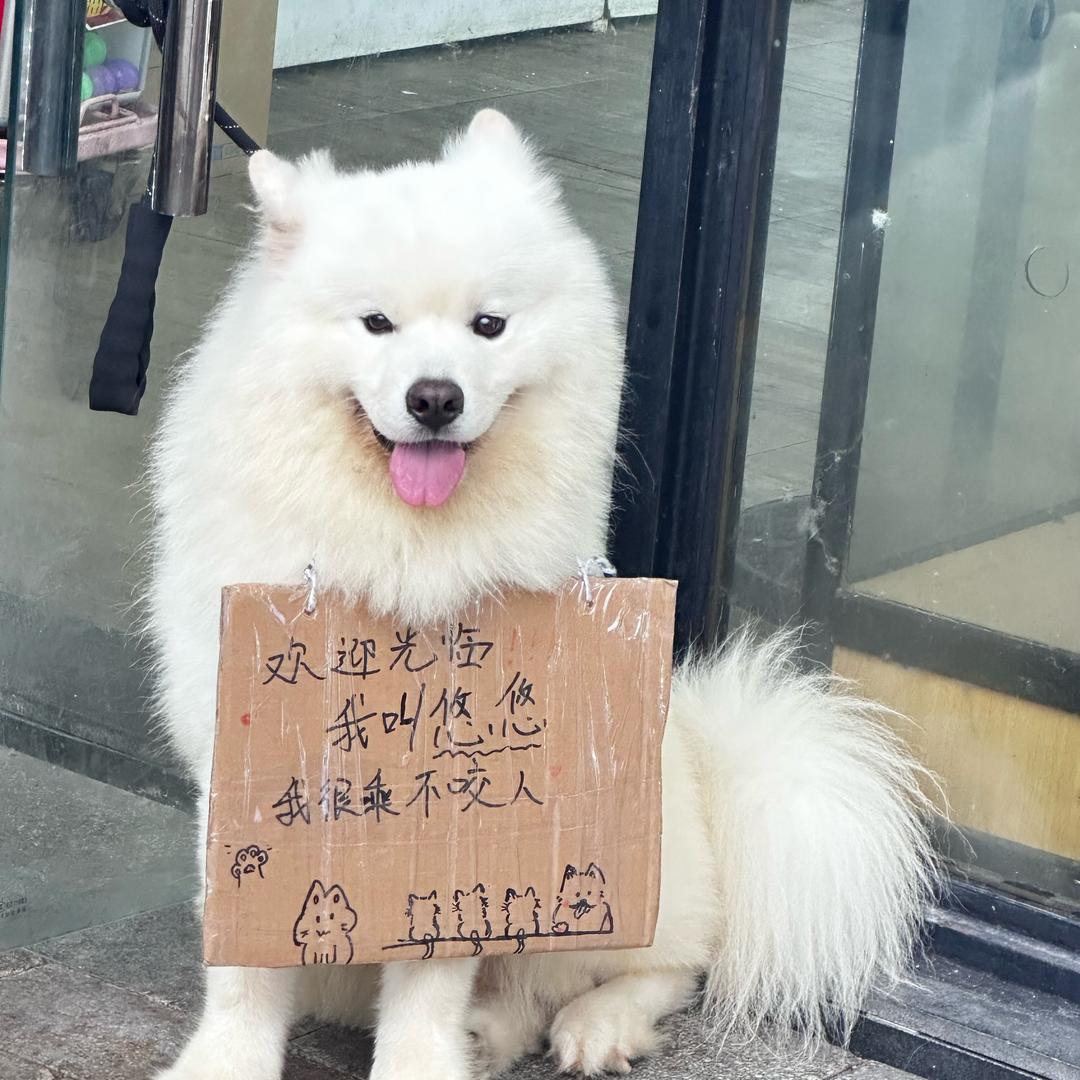 欢迎光临
我叫悠悠
我很乖不咬人